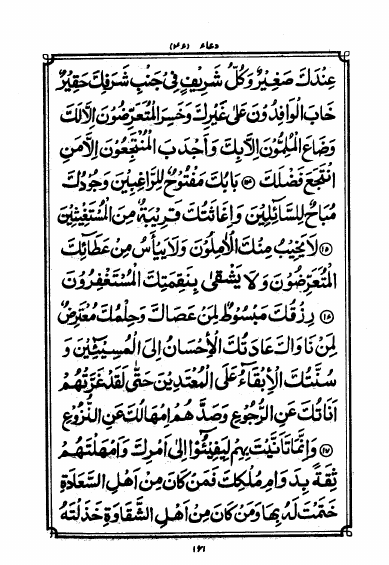 دعاء (۴۶)
عِنْدَكَ صَغِيْرٌ وَكُلُّ شَرِيْفٍ فِيْ جَنْبِ شَرَفِكَ حَقِيْرٌ
خَابَ الْوَافِدُوْنَ عَلٰى غَيْرِكَ وَخَسِرَ الْمُتَعَرِّضُوْنَ اِلَّا لَكَ
وَضَاعَ الْمُلِمُّوْنَ اِلَّا بِكَ وَاَجْدَبَ الْمُنْتَجِعُوْنَ اِلَّا مَنِ
انْتَجَعَ فَضْلَكَ بَابُكَ مَفْتُوْحٌ لِلرَّاغِبِيْنَ وَجُوْدُكَ
مُبَاحٌ لِلسَّائِلِيْنَ وَاِغَاثَتُكَ قَرِيْبَةٌ مِنَ الْمُسْتَغِيْثِيْنَ
لَا يَخِيْبُ مِنْكَ الْاٰمِلُوْنَ وَلَا يَيْأَسُ مِنْ عَطَائِكَ
الْمُتَعَرِّضُوْنَ وَلَا يَشْقٰى بِنَقِمَتِكَ الْمُسْتَغْفِرُوْنَ
رِزْقُكَ مَبْسُوْطٌ لِمَنْ عَصَاكَ وَحِلْمُكَ مُعْتَرِضٌ
لِمَنْ نَاوَاكَ عَادَتُكَ الْاِحْسَانُ اِلَى الْمُسِيْئِيْنَ وَ
سُنَّتُكَ الْاِبْقَاءُ عَلَى الْمُعْتَدِيْنَ حَتّٰى لَقَدْ غَرَّتْهُمْ
اَنَاتُكَ عَنِ الرُّجُوْعِ وَصَدَّهُمْ اِمْهَالُكَ عَنِ النُّزُوْعِ
وَاِنَّمَا تَاَنَّيْتَ بِهِمْ لِيَفِيْئُوْا اِلٰى اَمْرِكَ وَاَمْهَلْتَهُمْ
ثِقَةً بِدَوَامِ مُلْكِكَ فَمَنْ كَانَ مِنْ اَهْلِ السَّعَادَةِ
خَتَمْتَ لَهُ بِهَا وَمَنْ كَانَ مِنْ اَهْلِ الشَّقَاوَةِ خَذَلْتَهُ